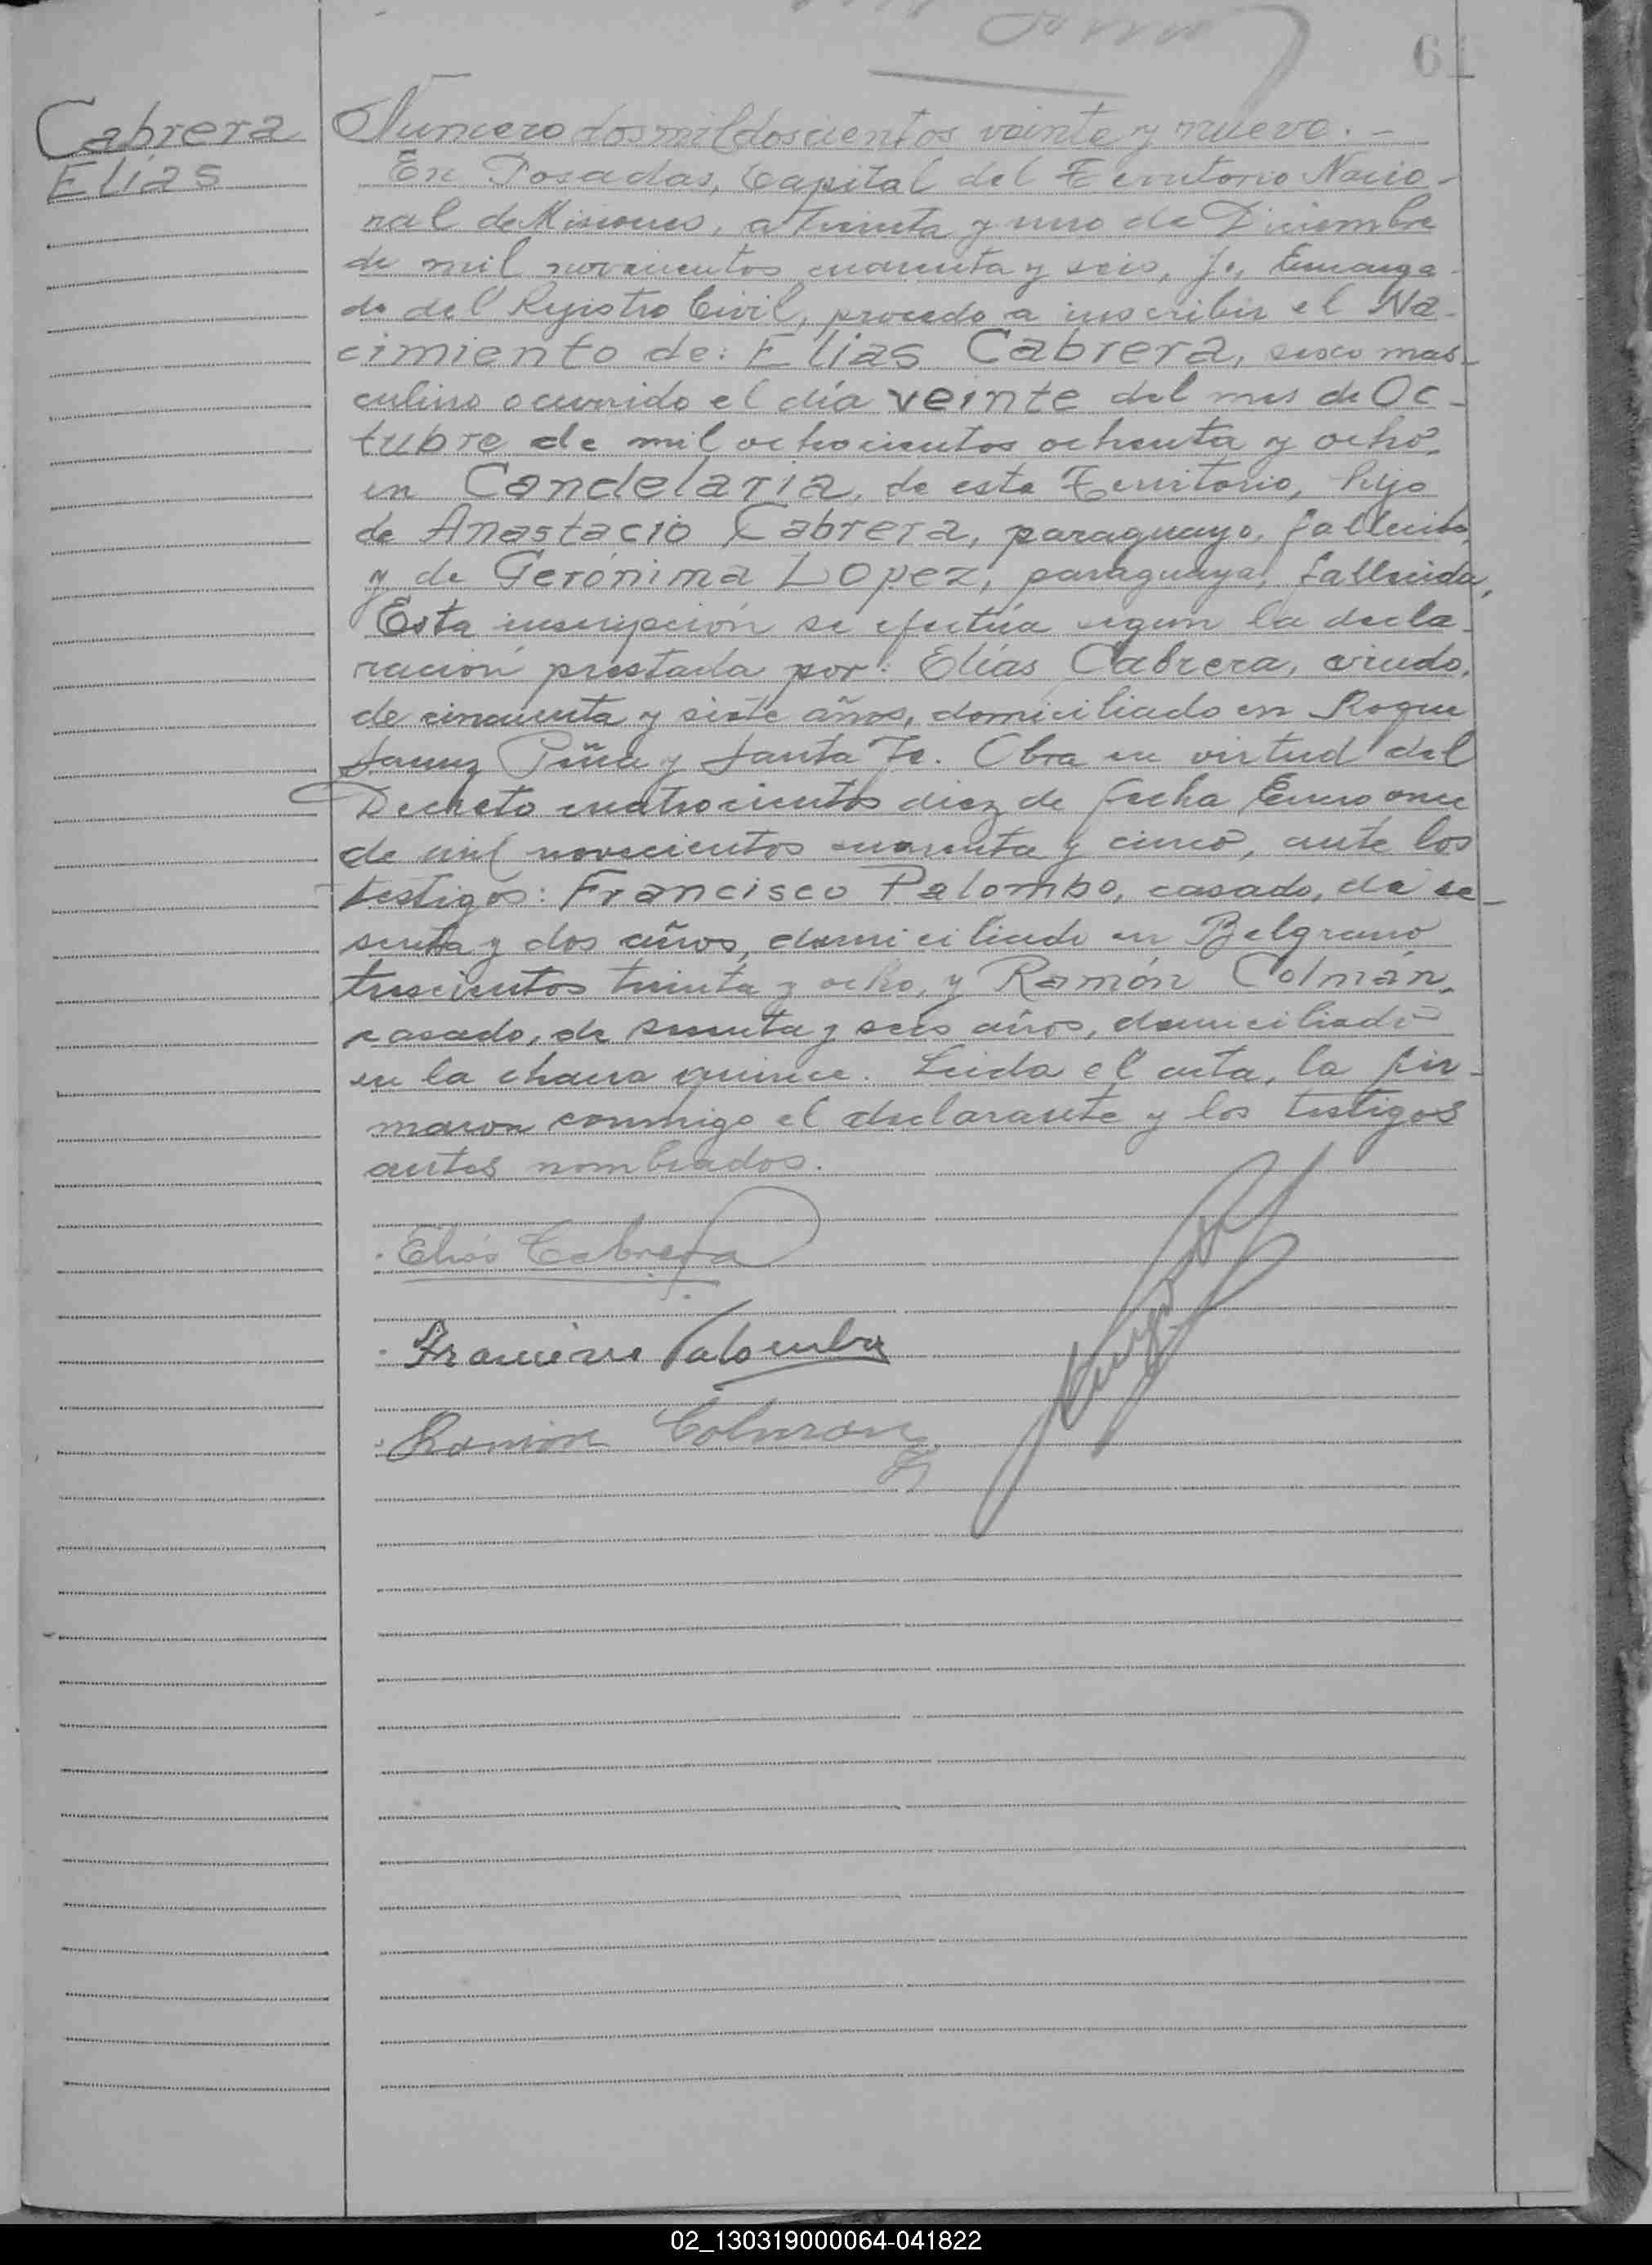 61
Cabrera
Elías
Número dos mil doscientos veinte y nueve. -
En Posadas, Capital del Territorio Nacio-
nal de Misiones, a treinta y uno de Diciembre
de mil novecientos cuarenta y seis, yo, Encarga-
do del Registro Civil, procedo a inscribir el Na-
cimiento de: Elías Cabrera, sexo mas-
culino ocurrido el día veinte del mes de Oc-
tubre de mil ochocientos ochenta y ocho,
en Candelaria, de este Territorio, hijo
de Anastacio Cabrera, paraguayo, fallecido,
y de Gerónima Lopez, paraguaya, fallecida,
Esta inscripción se efectúa segun la decla-
ración prestada por: Elías Cabrera, viudo,
de cincuenta y siete años, domiciliado en Roque
Saenz Peña y Santa Fe. Obra en virtud del
Decreto cuatrocientos diez de fecha Enero once
de mil novecientos cuarenta y cinco, ante los
testigos: Francisco Palombo, casado, de se-
senta y dos años, domiciliado en Belgrano
trescientos treinta y ocho, y Ramón Colmán,
casado, de sesenta y seis años, domiciliado
en la chacra quince. Leída el acta, la fir-
maron conmigo el declarante y los testigos
antes nombrados.
Elías Cabrera
Francisco Palombo
Ramón Colman
02_130319000064-041822